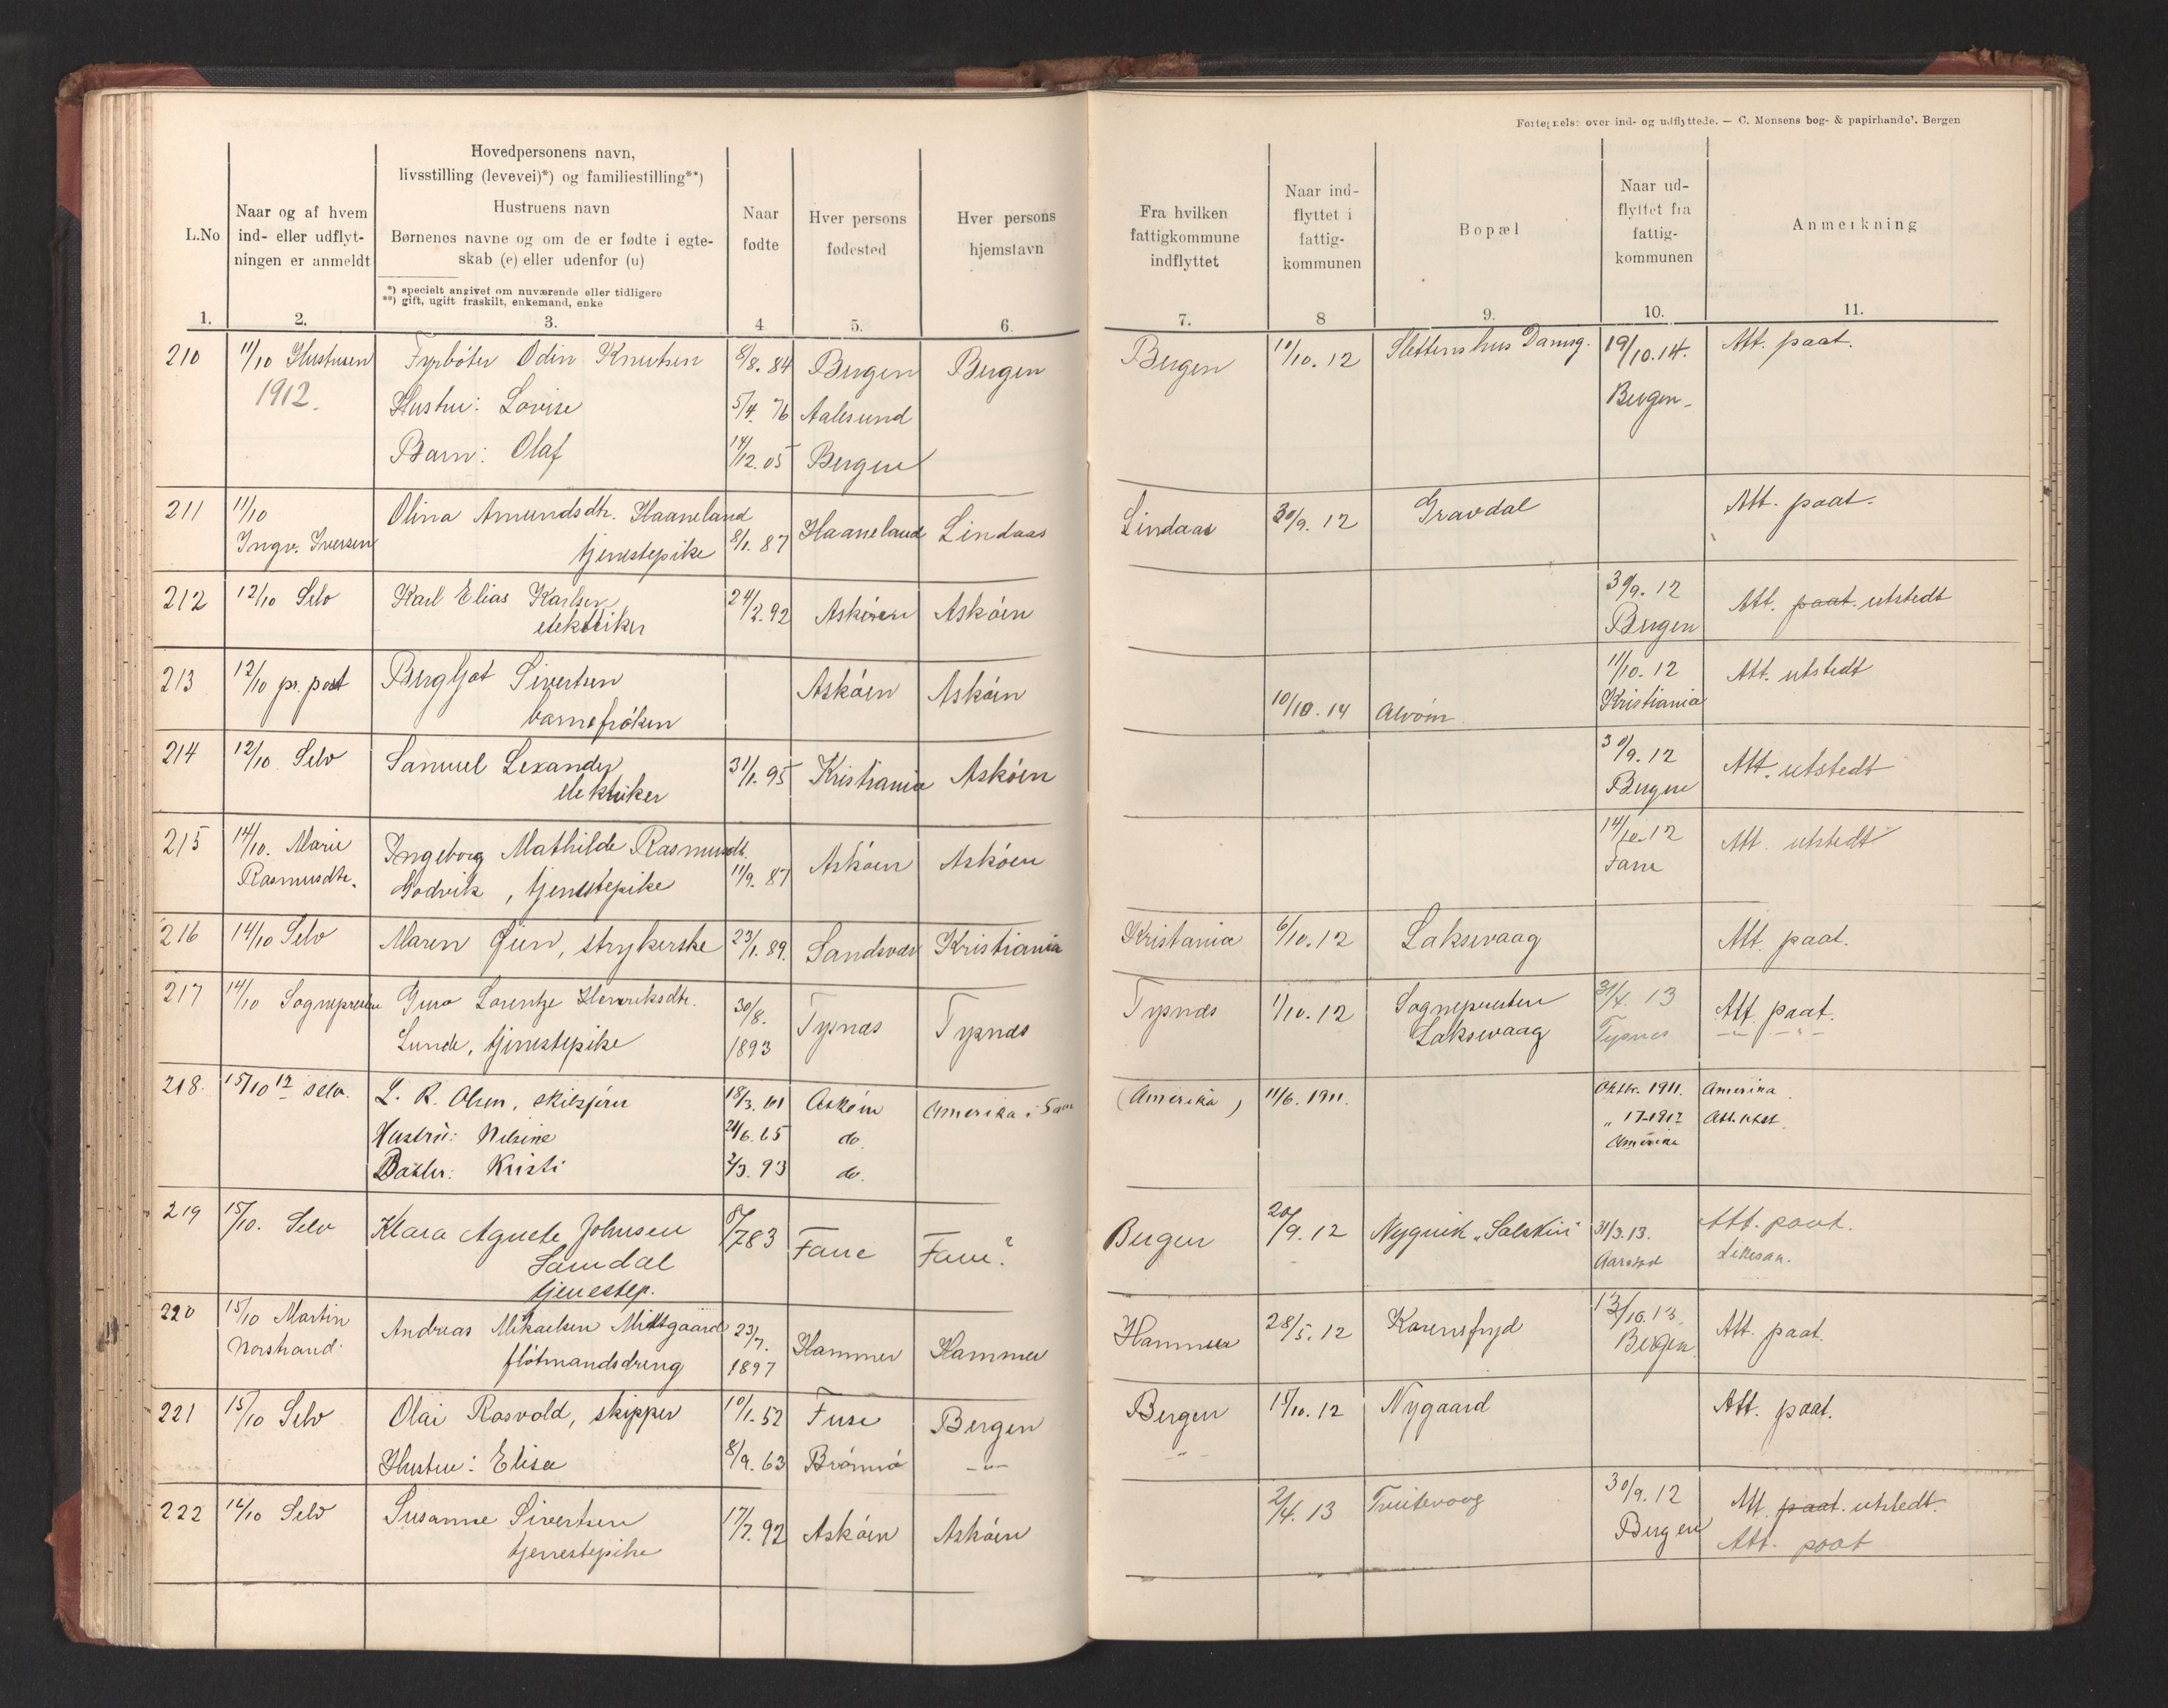 Fortegnelse over ind- og udflyttede. — C. Monsens bog- & papirhandel. Bergen
L.No
Naar og af hvem
ind- eller udflyt-
ningen er anmeldt
Hovedpersonens navn,
livsstilling (levevei)*) og familiestilling**)
Hustruens navn
Børnenes navne og om de er fødte i egte-
skab (e) eller udenfor (u)
*) specielt angivet om nuværende eller tidligere
**) gift, ugift fraskilt, enkemand, enke
Naar
fødte
Hver persons
fødested
Hver persons
hjemstavn
Fra hvilken
fattigkommune
indflyttet
Naar ind-
flyttet i
fattig-
kommunen
Bopæl
Naar ud-
flyttet fra
fattig-
kommunen
Anmerkning
1. 2. 3. 4 5. 6. 7. 8 9. 10. 11.
210 11/10 Hustruen Fyrbøter Odin Knutsen 8/8. 84 Bergen Bergen Bergen 11/10. 12 Slettenshus Damsg. 19/10.14. Att. paat.
1912. Hustru: Lovise 5/4. 76 Aalesund Bergen
Barn: Olaf 14/12. 05 Bergen
211 11/10 Olina Amundsdtr. Haaneland 8/1. 87 Haaneland Lindaas Lindaas 30/9. 12 Gravdal Att. paat.
Ingv. Iversen tjenestepike
212 12/10 Selv Karl Elias Karlsen 24/2. 92 Askøen Askøen 30/9. 12 Att. paat. utstedt
elektriker Bergen
213 12/10 pr. post Bergljot Sivertsen Askøen Askøen 11/10. 12 Att. utstedt
barnefrøken 10/10. 14 Alvøen Kristiania
214 12/10 Selv Samuel Lexander 31/1. 95 Kristiania Askøen 30/9. 12 Att. utstedt
elektriker Bergen
215 14/10. Marie Ingeborg Mathilde Rasmusdtr. 11/9. 87 Askøen Askøen 14/10. 12 Att. utstedt
Rasmusdtr. Godvik, tjenestepike Fane
216 14/10 Selv Maren Gien, strykerske 23/1. 89. Sandsvær Kristiania Kristiania 6/10. 12 Laksevaag Att. paat.
217 14/10 Sognepresten Guro Lorentze Henriksdtr. 30/8. Tysnes Tysnes Tysnes 1/10. 12 Sognepresten 31/4. 13 Att. paat.
Lunde, tjenestepike 1893 Laksevaag Tysnes
218. 15/10 12 selv. L. R. Olsen, skibsfører 18/3. 61 Askøen Amerika (Amerika) 11/6. 1911. Oktbr. 1911. Amerika
Hustru: Nilsine 24/6. 65 do. " 17-1912 Att. utst.
Datter: Kristi 2/3. 93 do. Amerika
219 15/10. Selv Klara Agnete Johnsen 6/7 83 Fane Fane? Bergen 20/9. 12 Nygaard "Solskin" 31/3. 13. Att. paat.
Samdal Aarstad
tjenestep.
220 15/10 Martin Andreas Mikaelsen Midtgaard 23/7. Hammer Hammer Hammer 28/5. 12 Karensfryd 13/10. 13. Att. paat.
Norstrand. fløtmandsdreng 1897 Bergen
221 15/10 Selv Olai Rosvold, skipper 10/1. 52 Fuse Bergen Bergen 15/10. 12 Nygaard Att. paat.
Hustru: Elisa 8/9. 63 Brønnø -"- -"-
222 16/10 Selv Susanne Sivertsen 17/7. 92 Askøen Askøen 2/4. 13 30/9. 12 Att. paat. utstedt.
tjenestepike Bergen Att. paat